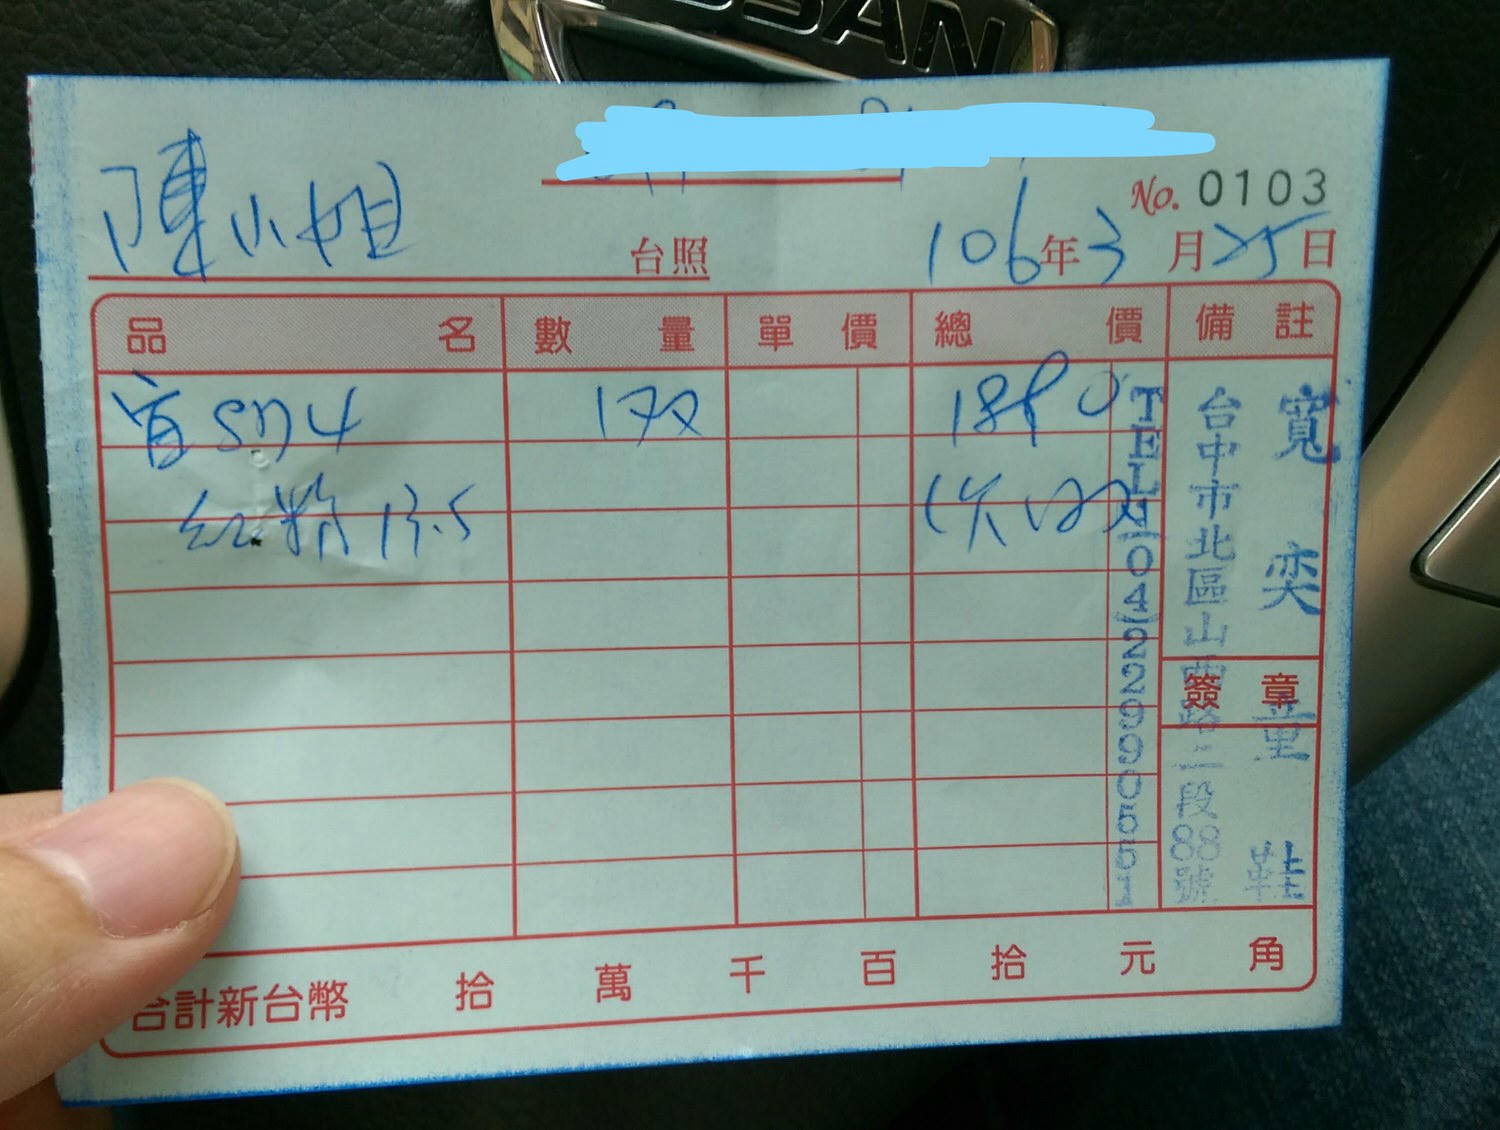 SSAN
陳小姐 台照
No. 0103
106年3月25日
品名 數量 單價 總價 備註
宜 SD4 1双 1880
红粉 13.5 (欠1双)
寬奕童鞋
台中市北區山西路二段88號
TEL:(04)22990551
簽章
合計新台幣 拾 萬 千 百 拾 元 角